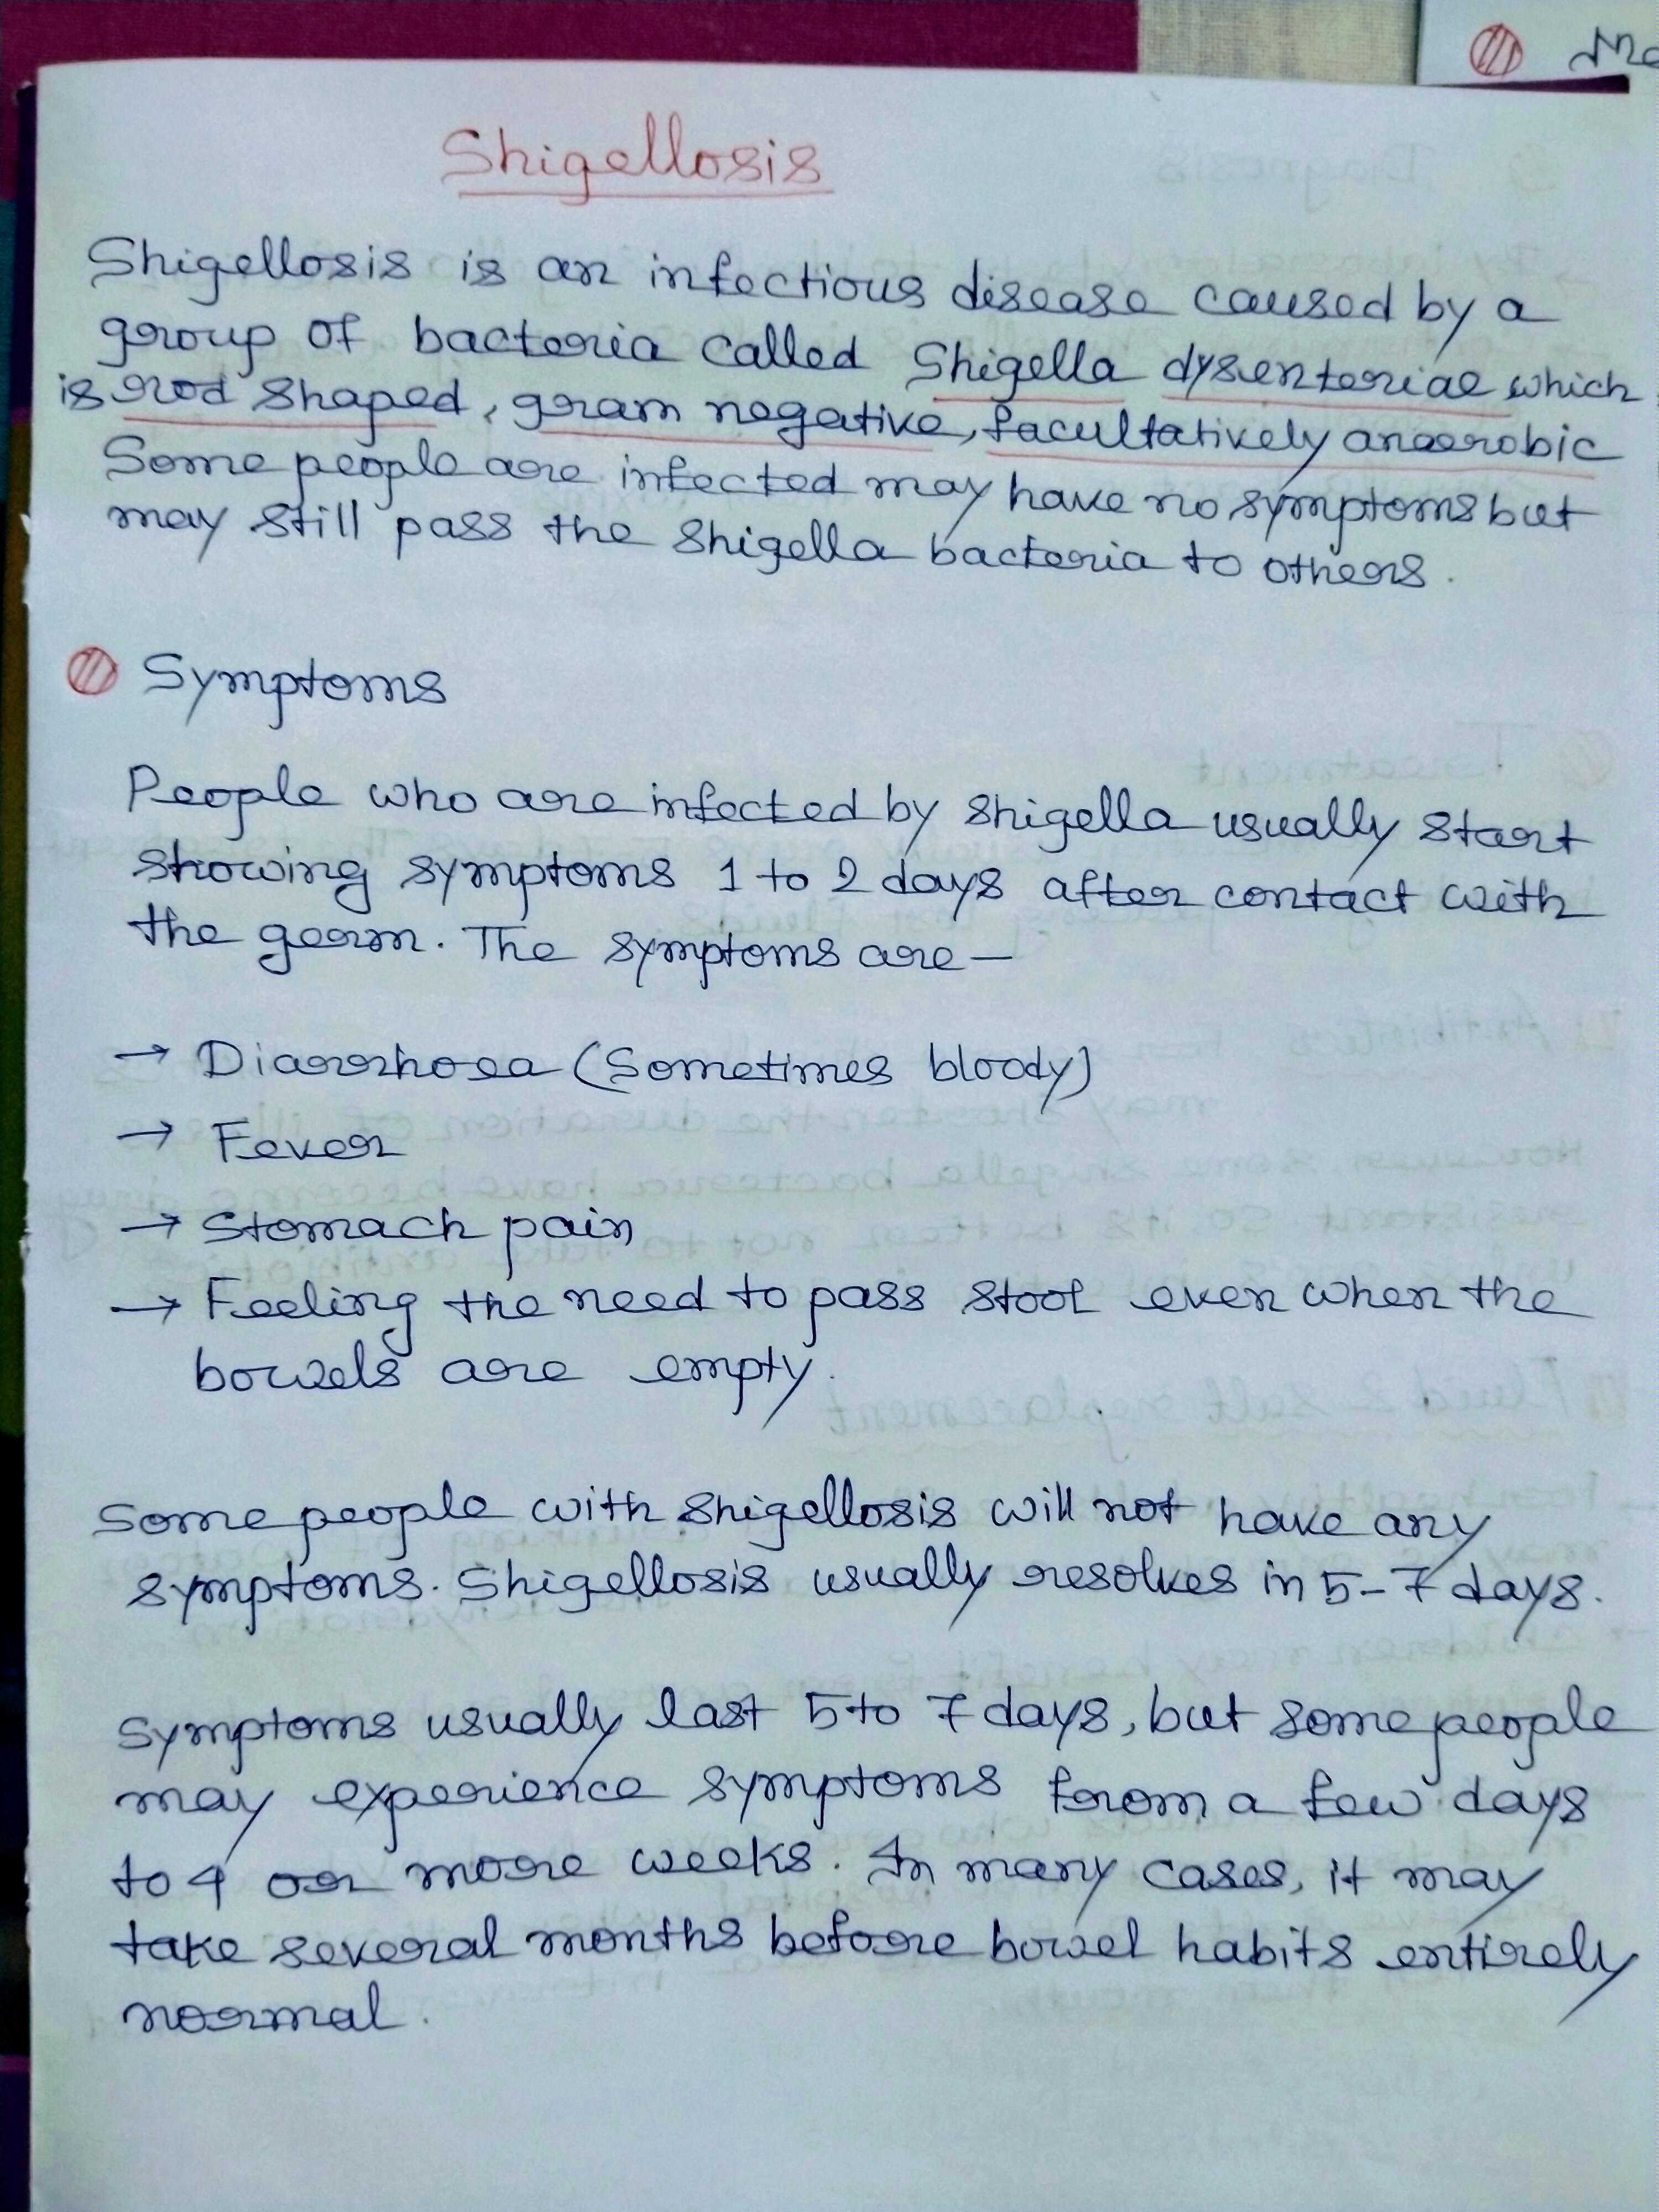 Shigellosis
Shigellosis is an infectious disease caused by a
group of bacteria called Shigella dysenteriae which
is rod shaped, gram negative, facultatively anaerobic
Some people are infected may have no symptoms but
may still pass the Shigella bacteria to others.
Symptoms
People who are infected by Shigella usually start
showing symptoms 1 to 2 days after contact with
the germ. The symptoms are—
→ Diarrhoea (Sometimes bloody)
→ Fever
→ Stomach pain
→ Feeling the need to pass stool even when the
bowels are empty.
Some people with Shigellosis will not have any
symptoms. Shigellosis usually resolves in 5-7 days.
Symptoms usually last 5 to 7 days, but some people
may experience symptoms from a few days
to 4 or more weeks. In many cases, it may
take several months before bowel habits entirely
normal.